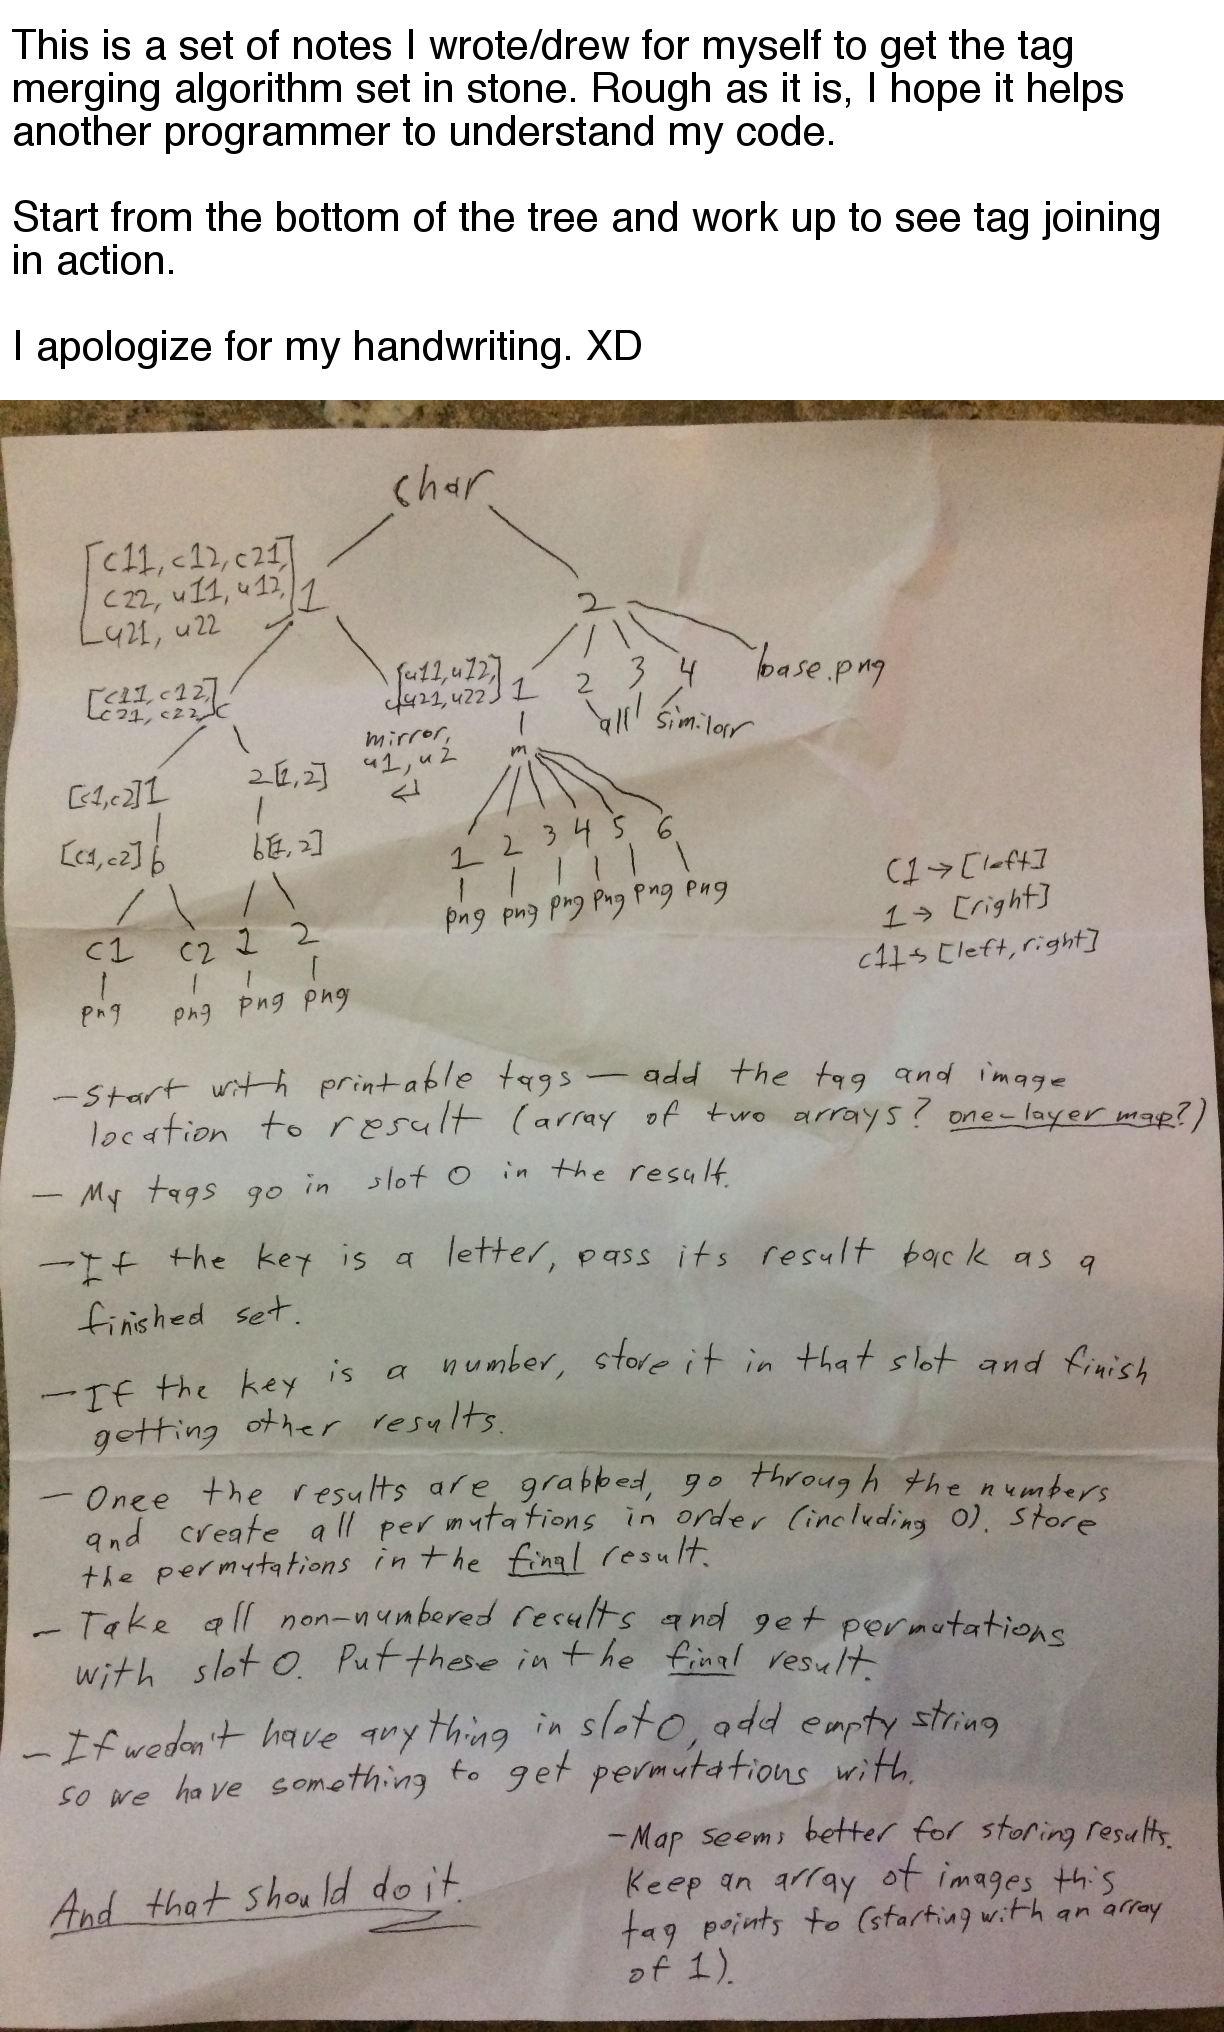 This is a set of notes I wrote/drew for myself to get the tag
merging algorithm set in stone. Rough as it is, I hope it helps
another programmer to understand my code.
Start from the bottom of the tree and work up to see tag joining
in action.
I apologize for my handwriting. XD
char
[c11, c12, c21,
c22, u11, u12,
u21, u22
1
2
[c11, c12,
c21, c22]
c
[u11, u12,
u21, u22]
1
2
3
4
base.png
all similar
mirror,
u1, u2
m
[c1,c2]1
2[1,2]
[c1,c2]b
b[1,2]
1 2 3 4 5 6
png png png png png png
c1 c2 1 2
png png png png
c1 → [left]
1 → [right]
c11 → [left, right]
- Start with printable tags — add the tag and image
location to result (array of two arrays? one-layer map?)
- My tags go in slot 0 in the result.
- If the key is a letter, pass its result back as a
finished set.
- If the key is a number, store it in that slot and finish
getting other results.
- Once the results are grabbed, go through the numbers
and create all permutations in order (including 0). Store
the permutations in the final result.
- Take all non-numbered results and get permutations
with slot 0. Put these in the final result.
- If we don't have anything in slot 0, add empty string
so we have something to get permutations with.
- Map seems better for storing results.
Keep an array of images this
tag points to (starting with an array
of 1).
And that should do it.